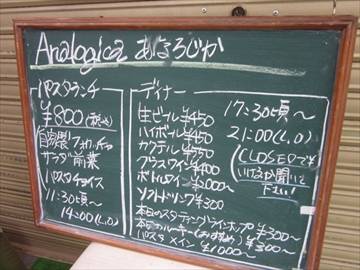 Analogica あなろじか
パスタランチ
¥800(税込)
自家製フォカッチャ
サラダ 前菜
パスタチョイス
11:30頃〜
14:00(L,O)
ディナー
生ビール ¥450
ハイボール ¥450
カクテル ¥550
グラスワイン ¥400
ボトルワイン ¥000〜
ソフトドリンク ¥300
本日のスターティングラインナップ ¥300〜
本日の ¥300〜
パスタ メイン ¥1000〜
17:30頃〜
21:00(L,O)
(CLOSEDでも
聞いて
下さい!)